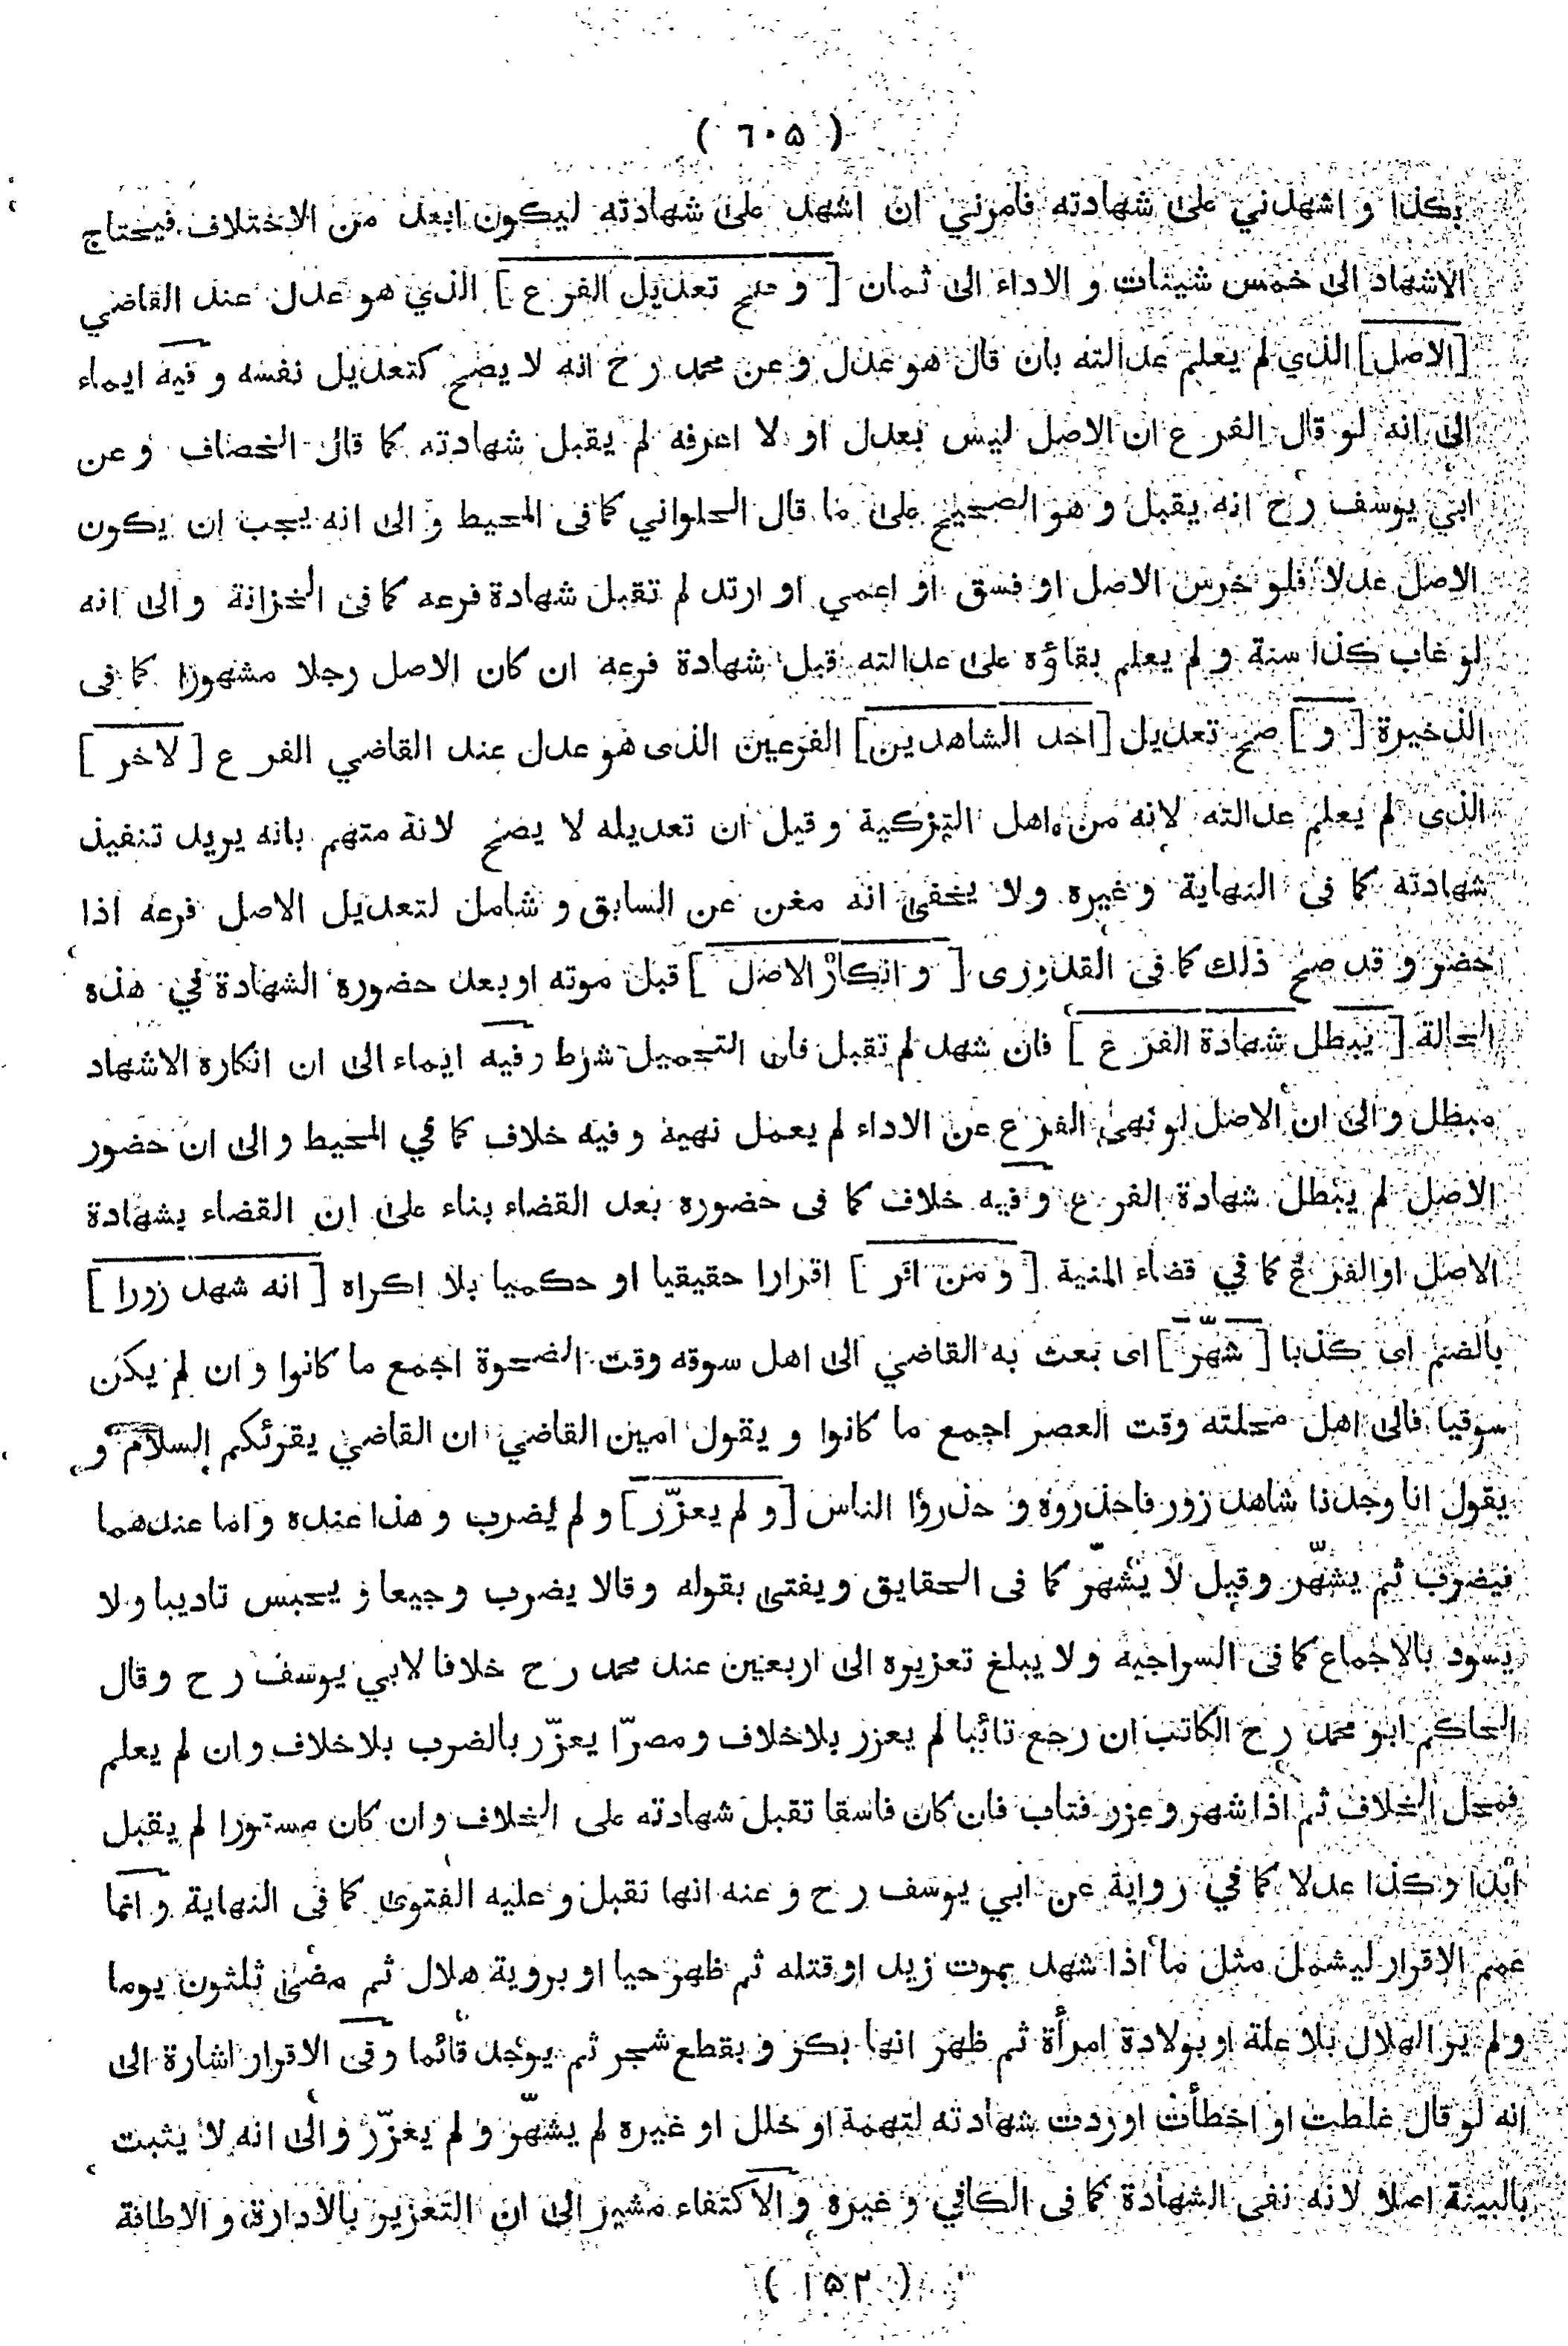 ( ٦٠٥ )
بكذا و اشهدني على شهادته فامرني ان اشهد على شهادته ليكون ابعد من الاختلاف فيحتاج
الاشهاد الى خمس شينات و الاداء الى ثمان [ و صح تعديل الفرع ] الذي هو عدل عند القاضي
[الاصل] الذي لم يعلم عدالته بان قال هو عدل و عن محمد رح انه لا يصح كتعديل نفسه و فيه ايماء
الى انه لو قال الفرع ان الاصل ليس بعدل او لا اعرفه لم يقبل شهادته كما قال الخصاف و عن
ابي يوسف رح انه يقبل و هو الصحيح على ما قال الحلواني كما فى المحيط و الى انه يجب ان يكون
الاصل عدلا فلو خرس الاصل او فسق او اعمي او ارتد لم تقبل شهادة فرعه كما فى الخزانة و الى انه
لو غاب كذا سنة و لم يعلم بقاؤه على عدالته قبل شهادة فرعه ان كان الاصل رجلا مشهورا كما فى
الذخيرة [ و ] صح تعديل [احد الشاهدين] الفرعين الذى هو عدل عند القاضي الفرع [ لاخر ]
الذى لم يعلم عدالته لانه من اهل التزكية و قيل ان تعديله لا يصح لانه متهم بانه يريد تنفيذ
شهادته كما فى النهاية و غيره ولا يخفى انه مغن عن السابق و شامل لتعديل الاصل فرعه اذا
حضر و قد صح ذلك كما فى القدورى [ و انكار الاصل ] قبل موته او بعد حضوره الشهادة في هذه
الحالة [ يبطل شهادة الفرع ] فان شهد لم تقبل فان التحميل شرط و فيه ايماء الى ان انكاره الاشهاد
مبطل و الى ان الاصل لو نهى الفرع عن الاداء لم يعمل نهيه و فيه خلاف كما في المحيط و الى ان حضور
الاصل لم يبطل شهادة الفرع و فيه خلاف كما فى حضوره بعد القضاء بناء على ان القضاء بشهادة
الاصل او الفرع كما في قضاء المنية [ و من اقر ] اقرارا حقيقيا او حكميا بلا اكراه [ انه شهد زورا ]
بالضم اى كذبا [ شهّر ] اى بعث به القاضي الى اهل سوقه وقت الضحوة اجمع ما كانوا و ان لم يكن
سوقيا فالى اهل محلته وقت العصر اجمع ما كانوا و يقول امين القاضي ان القاضي يقرئكم السلام و
يقول انا وجدنا شاهد زور فاحذروه و حذروا الناس [ و لم يعزّر ] و لم يضرب و هذا عنده و اما عندهما
فيضرب ثم يشهّر و قيل لا يشهّر كما فى الحقايق و يفتى بقوله و قالا يضرب و جيعا و يحبس تاديبا و لا
يسود بالاجماع كما فى السراجية و لا يبلغ تعزيره الى اربعين عند محمد رح خلافا لابي يوسف رح و قال
الحاكم ابو محمد رح الكاتب ان رجع تائبا لم يعزر بلاخلاف و مصرّا يعزّر بالضرب بلاخلاف و ان لم يعلم
فمحل الخلاف ثم اذا شهر و عزر فتاب فان كان فاسقا تقبل شهادته على الخلاف و ان كان مستورا لم يقبل
ابدا و كذا عدلا كما في رواية عن ابي يوسف رح و عنه انها تقبل و عليه الفتوى كما فى النهاية و انما
عمم الاقرار ليشمل مثل ما اذا شهد بموت زيد او قتله ثم ظهر حيا او بروية هلال ثم مضى ثلثون يوما
و لم ير الهلال بلا علة او بولادة امرأة ثم ظهر انها بكر و بقطع شجر ثم يوجد قائما و فى الاقرار اشارة الى
انه لو قال غلطت او اخطأت او ردت شهادته لتهمة او خلل او غيره لم يشهّر و لم يعزّر و الى انه لا يثبت
بالبينة اصلا لانه نفى الشهادة كما فى الكافي و غيره و الاكتفاء مشير الى ان التعزير بالادارة و الاطافة
( ١٥٢ )